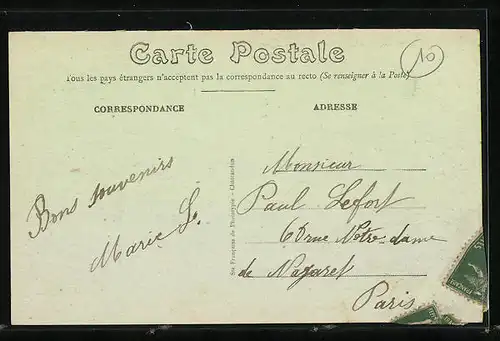 Carte Postale
10
Tous les pays étrangers n'acceptent pas la correspondance au recto (Se renseigner à la Poste)
CORRESPONDANCE
ADRESSE
Bons souvenirs
Marie L.
Monsieur
Paul Lefort
68 rue Notre-dame
de Nazaret
Paris